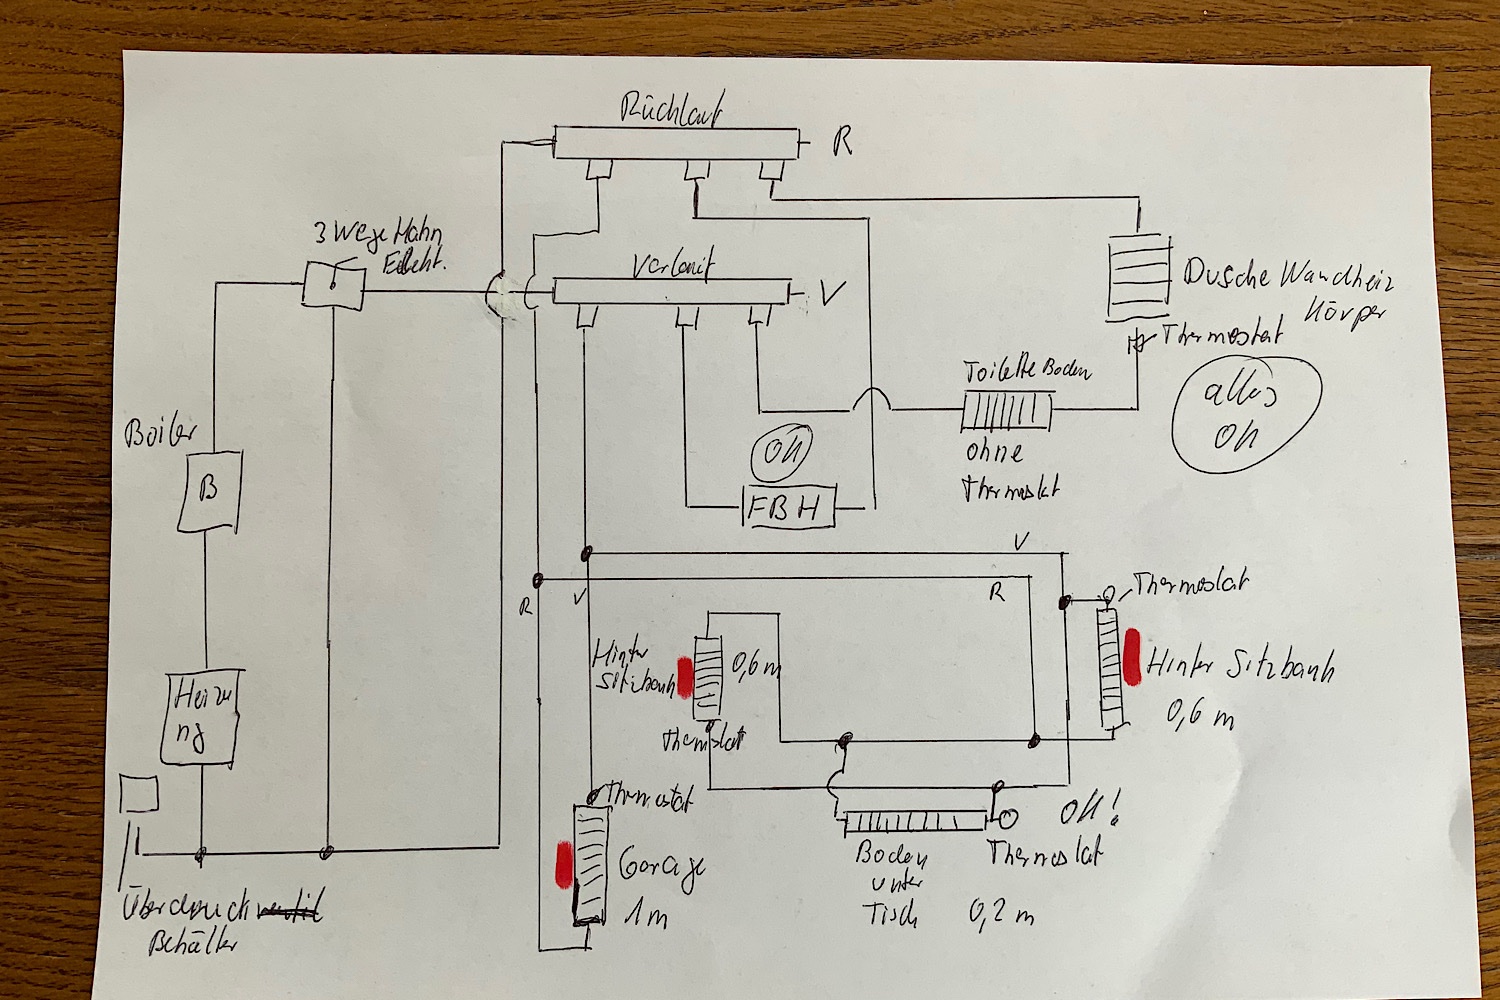 Rücklauf
R
3 Wege Hahn
Elekt.
Vorlauf
V
Dusche Wandheiz
Körper
Thermostat
Toilette Boden
alles
OK
Boiler
B
OK
ohne
Thermostat
FBH
V
R
V
R
Thermostat
Hinter
Sitzbank
0,6 m
Hinter Sitzbank
0,6 m
Heizu
ng
Thermostat
Thermostat
OK!
Garage
1 m
Boden
unter
Tisch
Thermostat
0,2 m
Überdruckventil
Behälter